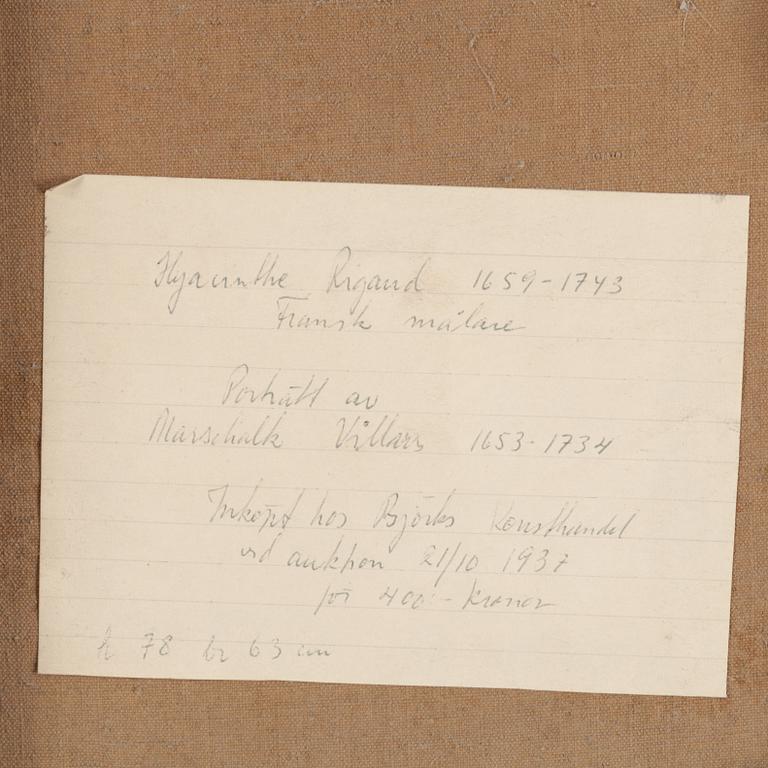 Hyacinthe Rigaud 1659-1743
Fransk målare
Porträtt av
Marschalk Villars 1653-1734
Inköpt hos Björks Konsthandel
vid auktion 21/10 1937
för 400:- kronor
h 78 br 63 cm